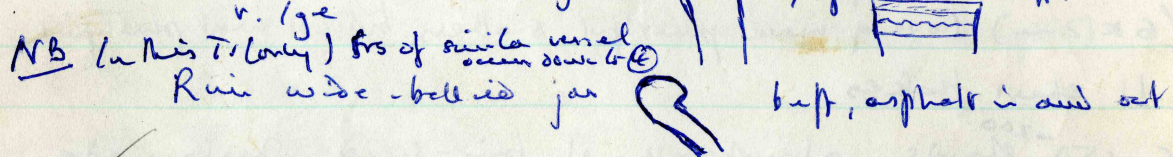 v. lge
NB (in this Tr. only) frs of similar vessel
occur down to (E)
Rim wide-bellied jar buff, asphalt in and out